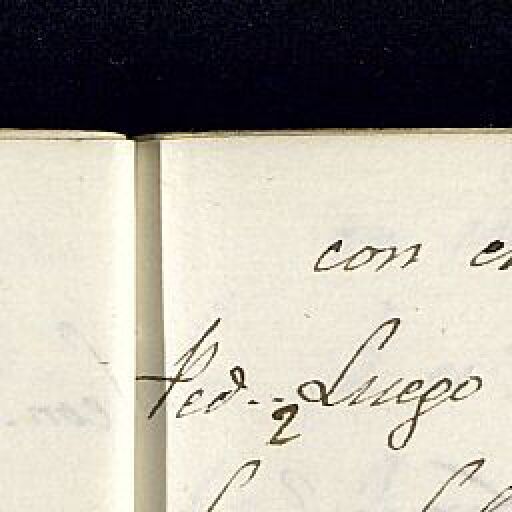 con
Ped.. 2 Luego